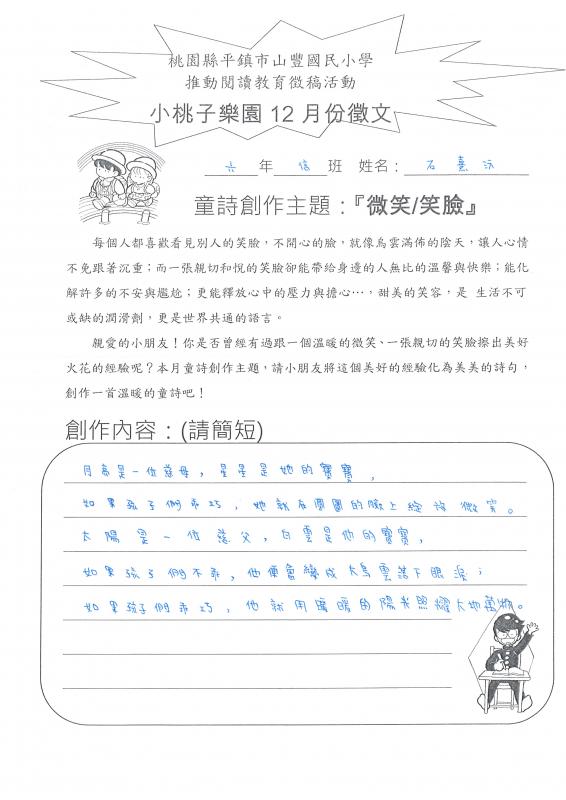 桃園縣平鎮市山豐國民小學
推動閱讀教育徵稿活動
小桃子樂園 12 月份徵文
六 年 信 班 姓名： 石熹沂
童詩創作主題：『微笑/笑臉』
每個人都喜歡看見別人的笑臉，不開心的臉，就像烏雲滿佈的陰天，讓人心情
不免跟著沉重；而一張親切和悅的笑臉卻能帶給身邊的人無比的溫馨與快樂；能化
解許多的不安與尷尬；更能釋放心中的壓力與擔心…，甜美的笑容，是 生活不可
或缺的潤滑劑，更是世界共通的語言。
親愛的小朋友！你是否曾經有過跟一個溫暖的微笑、一張親切的笑臉擦出美好
火花的經驗呢？本月童詩創作主題，請小朋友將這個美好的經驗化為美美的詩句，
創作一首溫暖的童詩吧！
創作內容：(請簡短)
月亮是一位慈母，星星是她的寶寶，
如果孩子們乖巧，她就在圓圓的臉上綻放微笑。
太陽是一位慈父，白雲是他的寶寶，
如果孩子們不乖，他便會變成大烏雲落下眼淚；
如果孩子們乖巧，他就用暖暖的陽光照耀大地萬物。